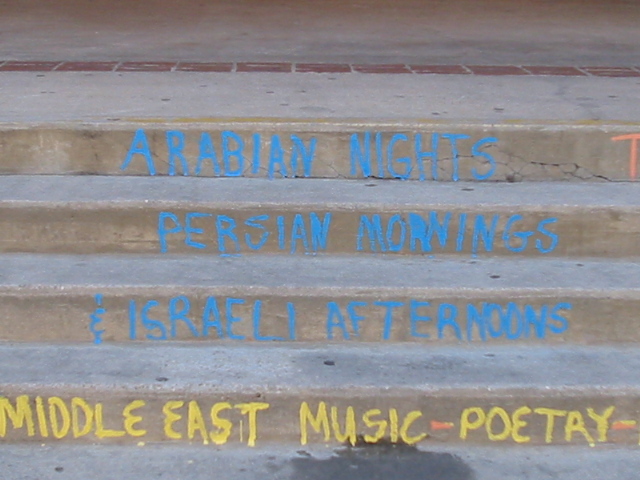 ARABIAN NIGHTS T
PERSIAN MORNINGS
& ISRAELI AFTERNOONS
MIDDLE EAST MUSIC-POETRY-